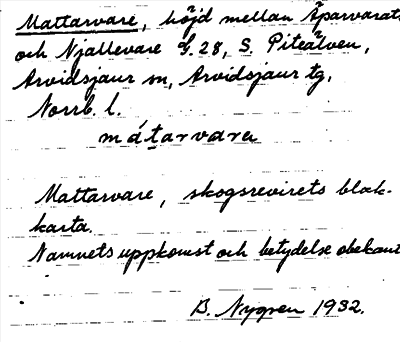 Mattarvare, höjd mellan Äparvarats
och Njallevare g. 28, S. Piteälven,
Arvidsjaur sn, Arvidsjaur tg,
Norrb. l.
mátarvara
Mattarvare, skogsrevirets blak-
karta.
Namnets uppkomst och betydelse obekant
B. Nygren 1932.